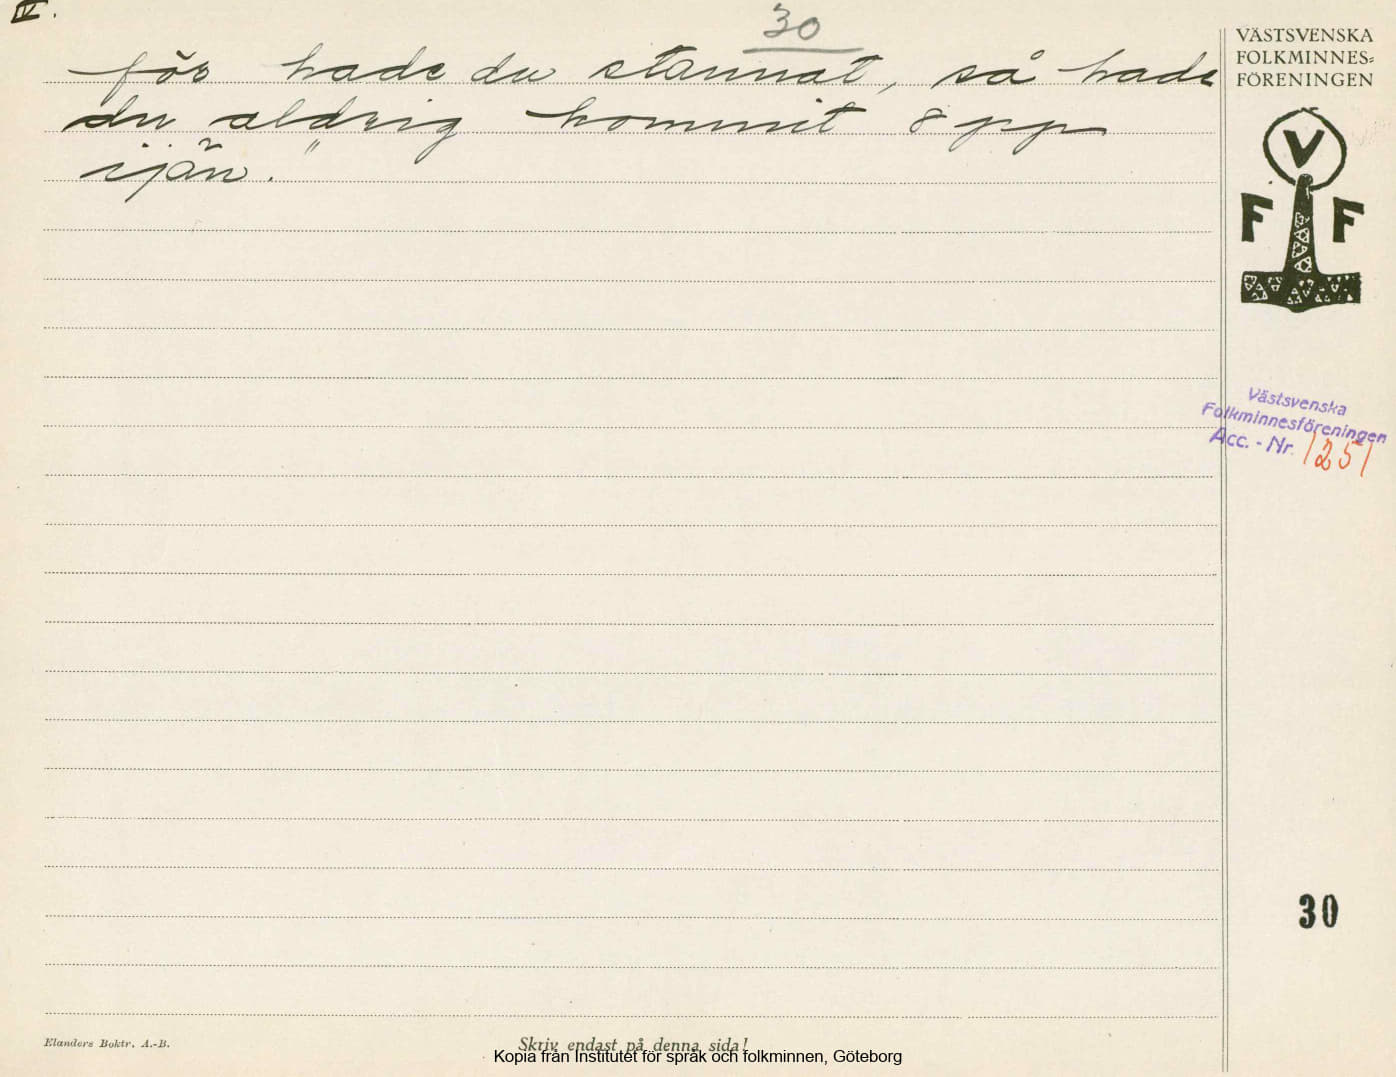 IV.
30
för hade du stannat, så hade
du aldrig kommit opp
ijän."
VÄSTSVENSKA
FOLKMINNES-
FÖRENINGEN
V
F F
Västsvenska
Folkminnesföreningen
Acc. - Nr. 1251
30
Elanders Boktr. A.-B.
Skriv endast på denna sida!
Kopia från Institutet för språk och folkminnen, Göteborg